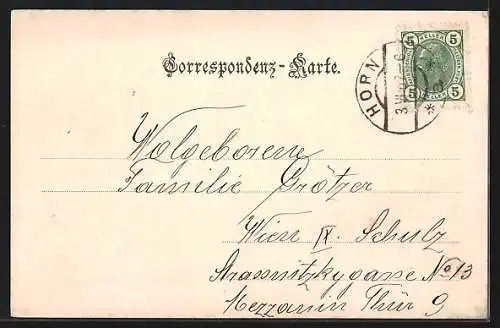 Correspondenz-Karte.
5 HELLER 5
5 HELLER 5
HORN
Wolgeborene
Familie Grötzer
Wien IX. Schulz
Strassnitzkygasse No 13
Mezzanin Thür 9